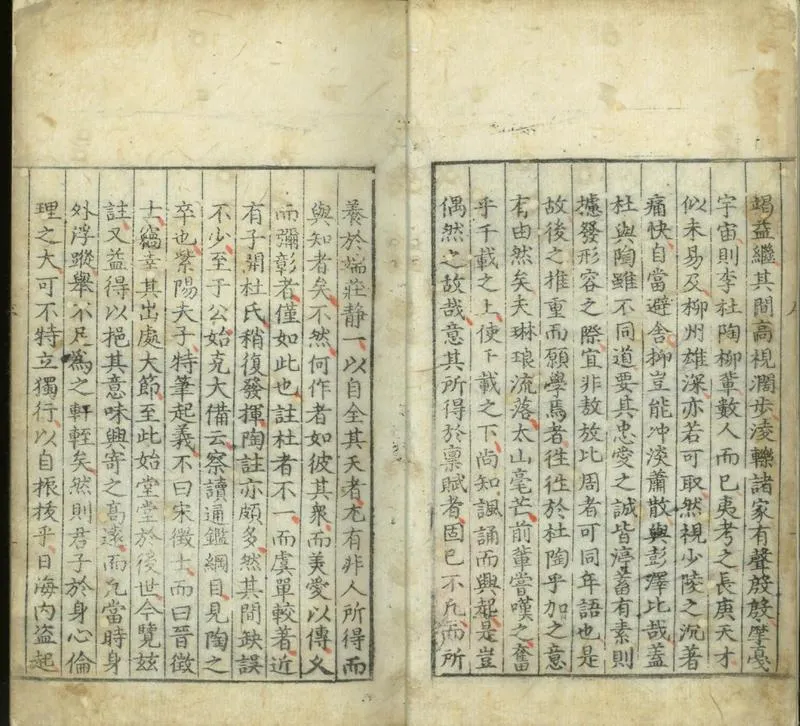 竭益繼其間高視濶步淩轢諸家有聲殷殷摩戞
宇宙則李杜陶柳輩數人而已夷考之長庚天才
似未易及柳州雄深亦若可取然視少陵之沉著
痛快自當避舍柳豈能冲淡蕭散與彭澤比哉蓋
杜與陶雖不同道要其忠愛之誠皆渟蓄有素則
攄發形容之際宜非敖放比周者可同年語也是
故後之推重而願學焉者徃徃於杜陶乎加之意
有由然矣夫琳琅流落太山毫芒前輩嘗嘆之奮
乎千載之上使下載之下尚知諷誦而興起是豈
偶然之故哉意其所得於禀賦者固已不凡而所
養於端莊静一以自全其天者尤有非人所得而
與知者矣不然何作者如彼其衆而美愛以傳乆
而彌彰者僅如此也註杜者不一而虞單較著近
有子開杜氏稍復發揮陶註亦頗多然其間缺誤
不少至于公始克大備云察讀通鑑綱目見陶之
卒也紫陽夫子特筆起義不曰宋徴士而曰晉徴
士竊幸其出處大節至此始堂堂於後世今覽兹
註又益得以挹其意味興寄之髙遠而凢當時身
外浮蹤舉不足爲之軒輊矣然則君子於身心倫
理之大可不特立獨行以自振拔乎日海内盗起